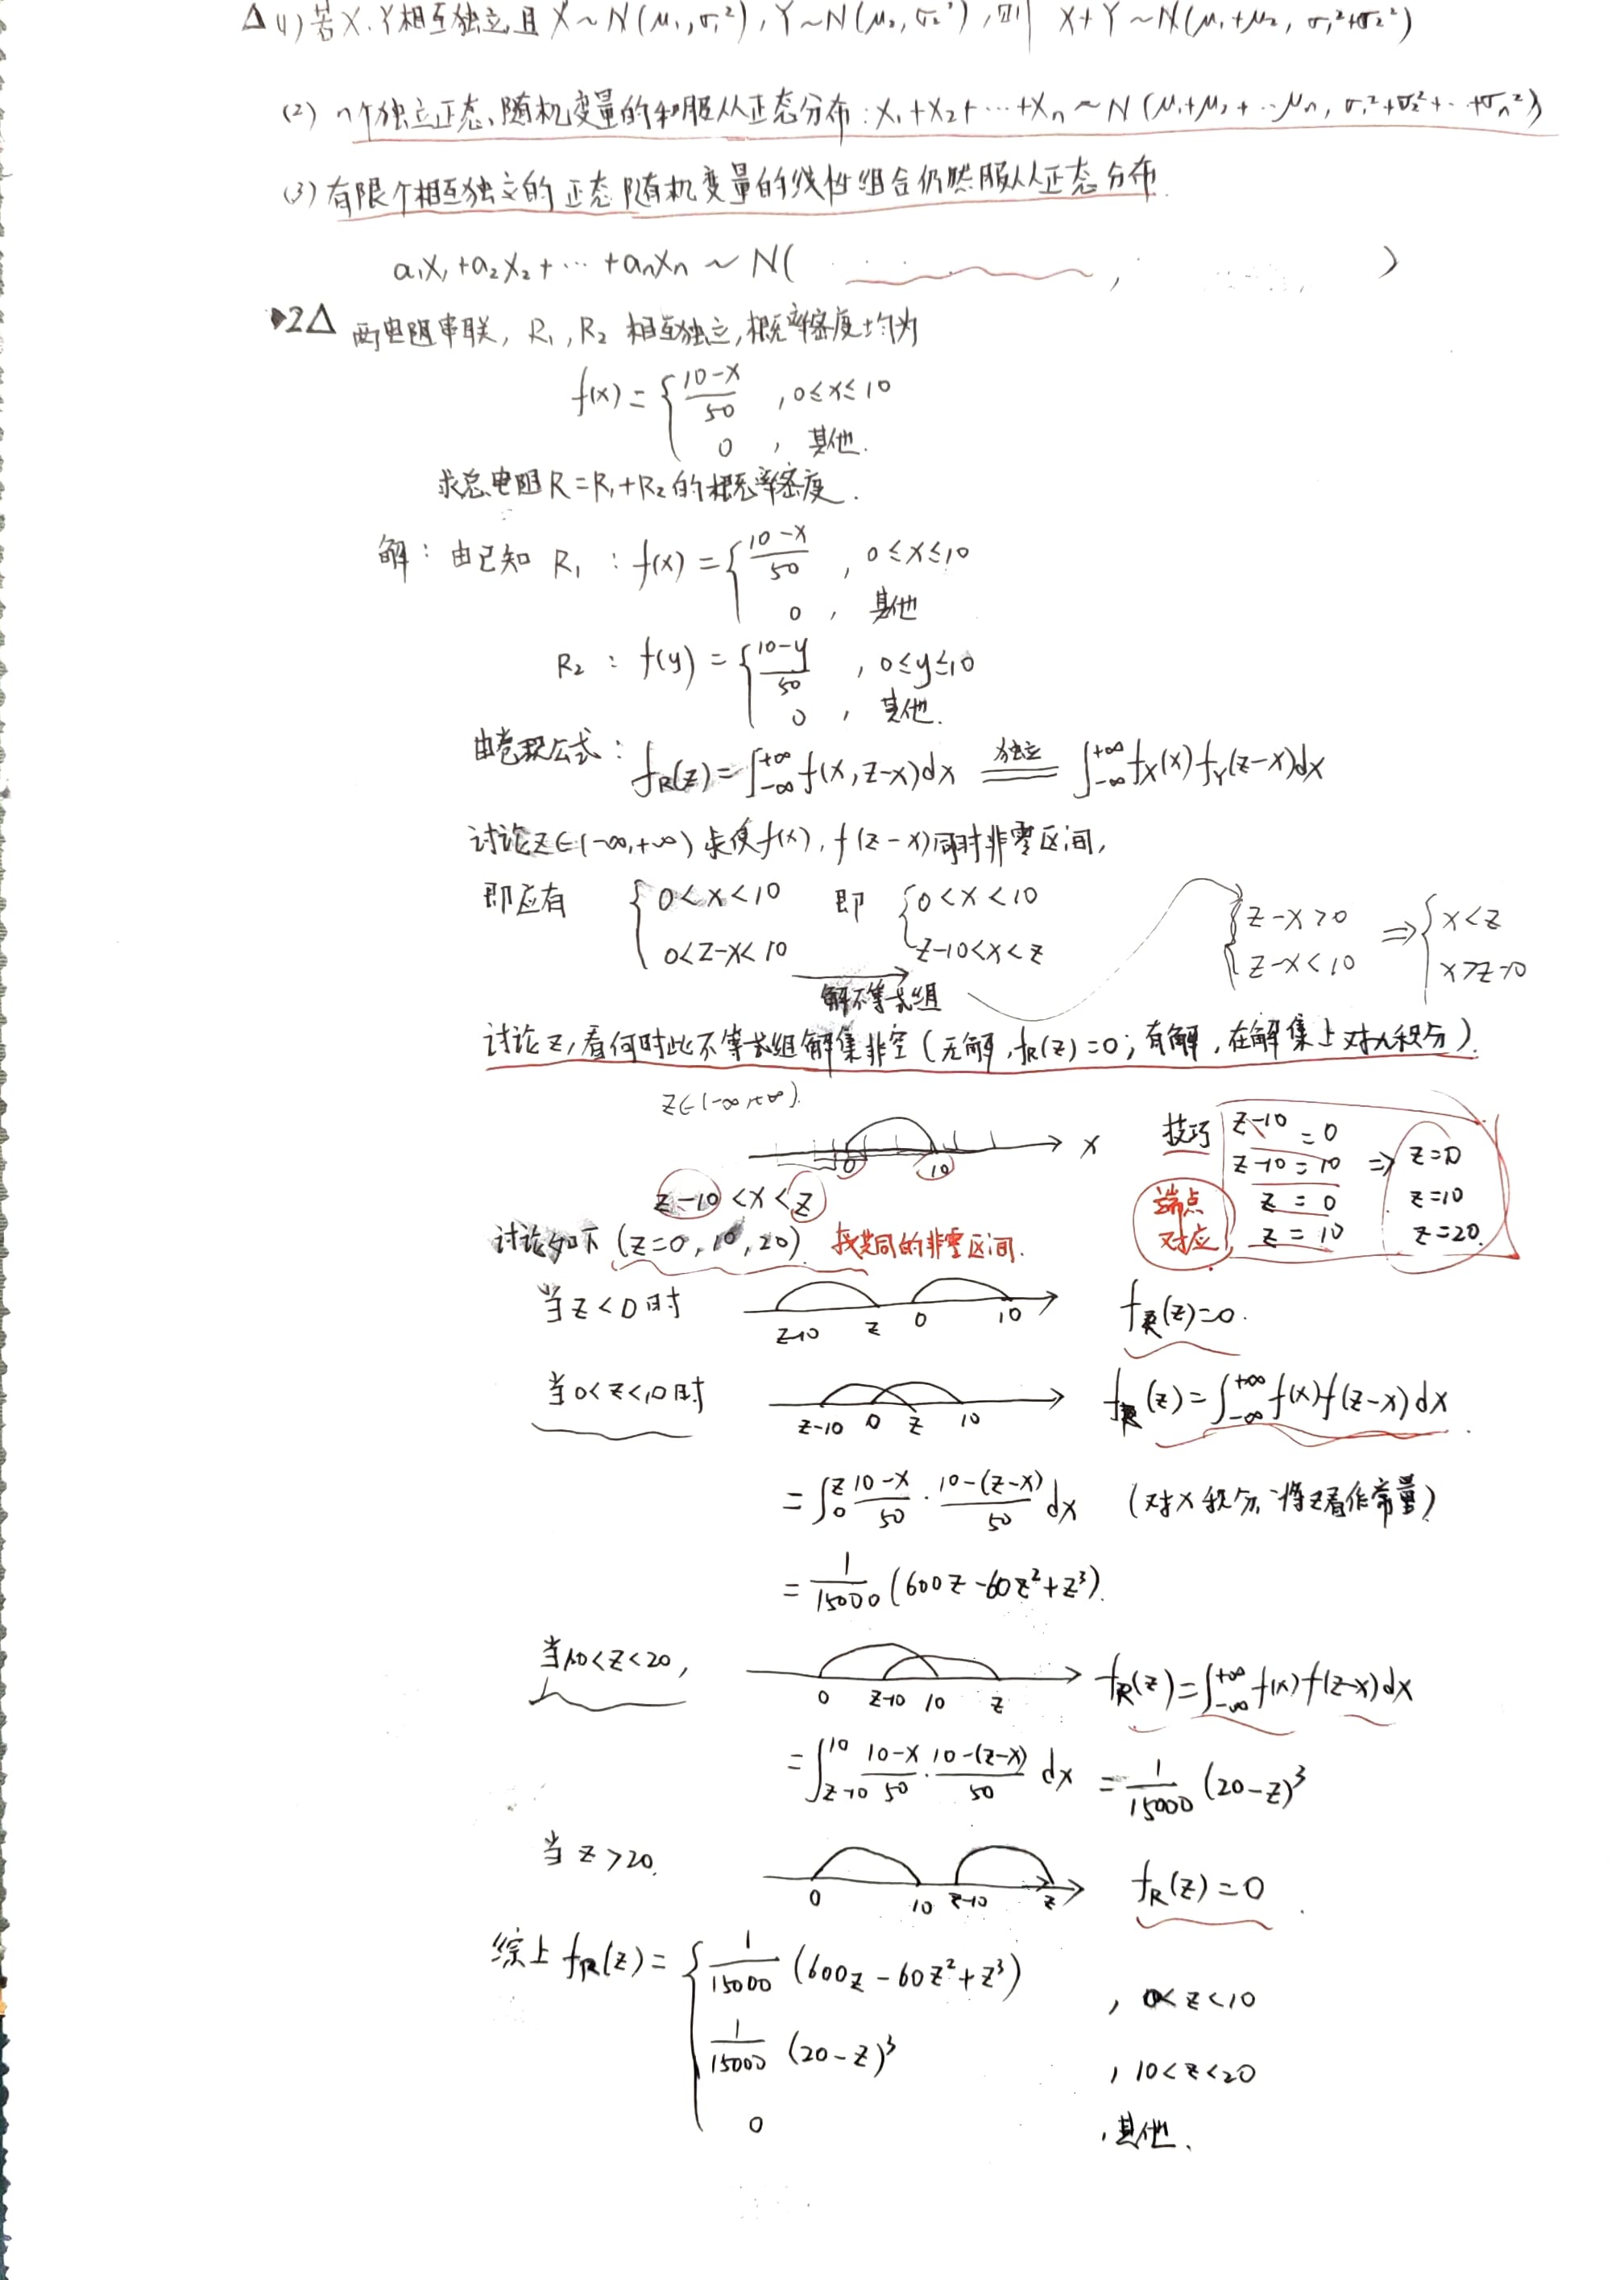 Δ (1) 若X、Y相互独立且 X~N(μ₁,σ₁²), Y~N(μ₂,σ₂²), 则 X+Y~N(μ₁+μ₂, σ₁²+σ₂²)
(2) n个独立正态随机变量的和服从正态分布: X₁+X₂+⋯+Xn ~ N(μ₁+μ₂+⋯μn, σ₁²+σ₂²+⋯+σn²)
(3) 有限个相互独立的正态随机变量的线性组合仍然服从正态分布.
a₁X₁+a₂X₂+⋯+anXn ~ N( , )
2Δ 两电阻串联, R₁, R₂ 相互独立, 概率密度均为
f(x)={ (10-x)/50 , 0≤x≤10
0 , 其他.
求总电阻R=R₁+R₂的概率密度.
解: 由已知 R₁ : f(x)={ (10-x)/50 , 0≤x≤10
0 , 其他
R₂ : f(y)={ (10-y)/50 , 0≤y≤10
0 , 其他.
由卷积公式: f_R(z)=∫_{-∞}^{+∞} f(x,z-x)dx ==独立== ∫_{-∞}^{+∞} f_X(x)f_Y(z-x)dx
讨论z∈(-∞,+∞) 求使f(x), f(z-x)同时非零区间,
即应有 { 0<x<10 即 { 0<x<10 { z-x>0 ⇒ { x<z
0<z-x<10 → z-10<x<z z-x<10 x>z-10
解不等式组
讨论z, 看何时此不等式组解集非空(无解, f_R(z)=0; 有解, 在解集上对x积分).
z∈(-∞,+∞).
0 10 x
z-10<x<z
技巧 z-10=0
z-10=10 ⇒ z=0
z=0 z=10
z=10 z=20.
端点对应
讨论如下 (z=0, 10, 20) 找共同的非零区间.
当z<0时 z-10 z 0 10 f_R(z)=0.
当0<z<10时 z-10 0 z 10 f_R(z)=∫_{-∞}^{+∞} f(x)f(z-x)dx
=∫_0^z (10-x)/50 · (10-(z-x))/50 dx (对x积分, 将z看作常量)
= 1/15000 (600z-60z²+z³).
当10<z<20, 0 z-10 10 z f_R(z)=∫_{-∞}^{+∞} f(x)f(z-x)dx
=∫_{z-10}^{10} (10-x)/50 · (10-(z-x))/50 dx = 1/15000 (20-z)³
当 z>20. 0 10 z-10 z f_R(z)=0
综上 f_R(z)={ 1/15000 (600z-60z²+z³) , 0<z<10
1/15000 (20-z)³ , 10<z<20
0 , 其他.